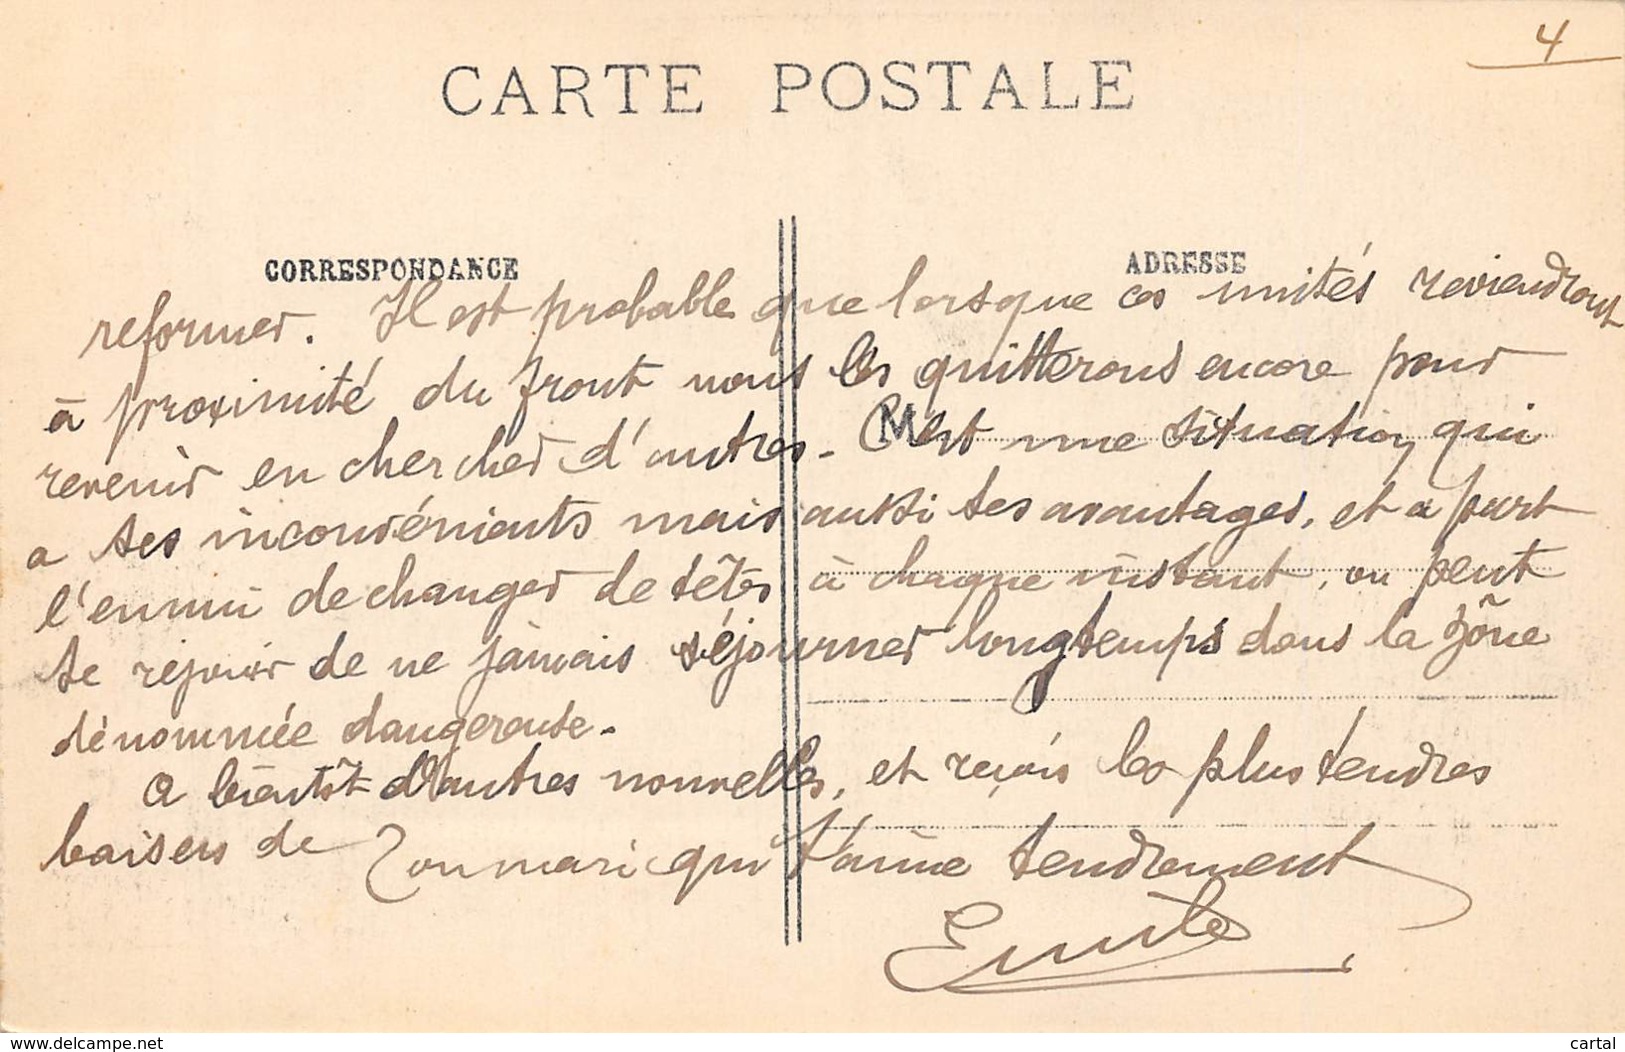 4
CARTE POSTALE
CORRESPONDANCE
ADRESSE
reformer. Il est probable que lorsque ces unités reviendront
à proximité du front nous les quitterons encore pour
revenir en chercher d'autres - C'est une situation qui
a ses inconvénients mais aussi ses avantages, et a part
l'ennui de changer de têtes à chaque instant, on peut
se rejouir de ne jamais séjourner longtemps dans la zône
dénommée dangereuse.
A bientôt d'autres nouvelles, et reçois les plus tendres
baisers de Ton mari qui t'aime tendrement
Emile
delcampe.net
cartal